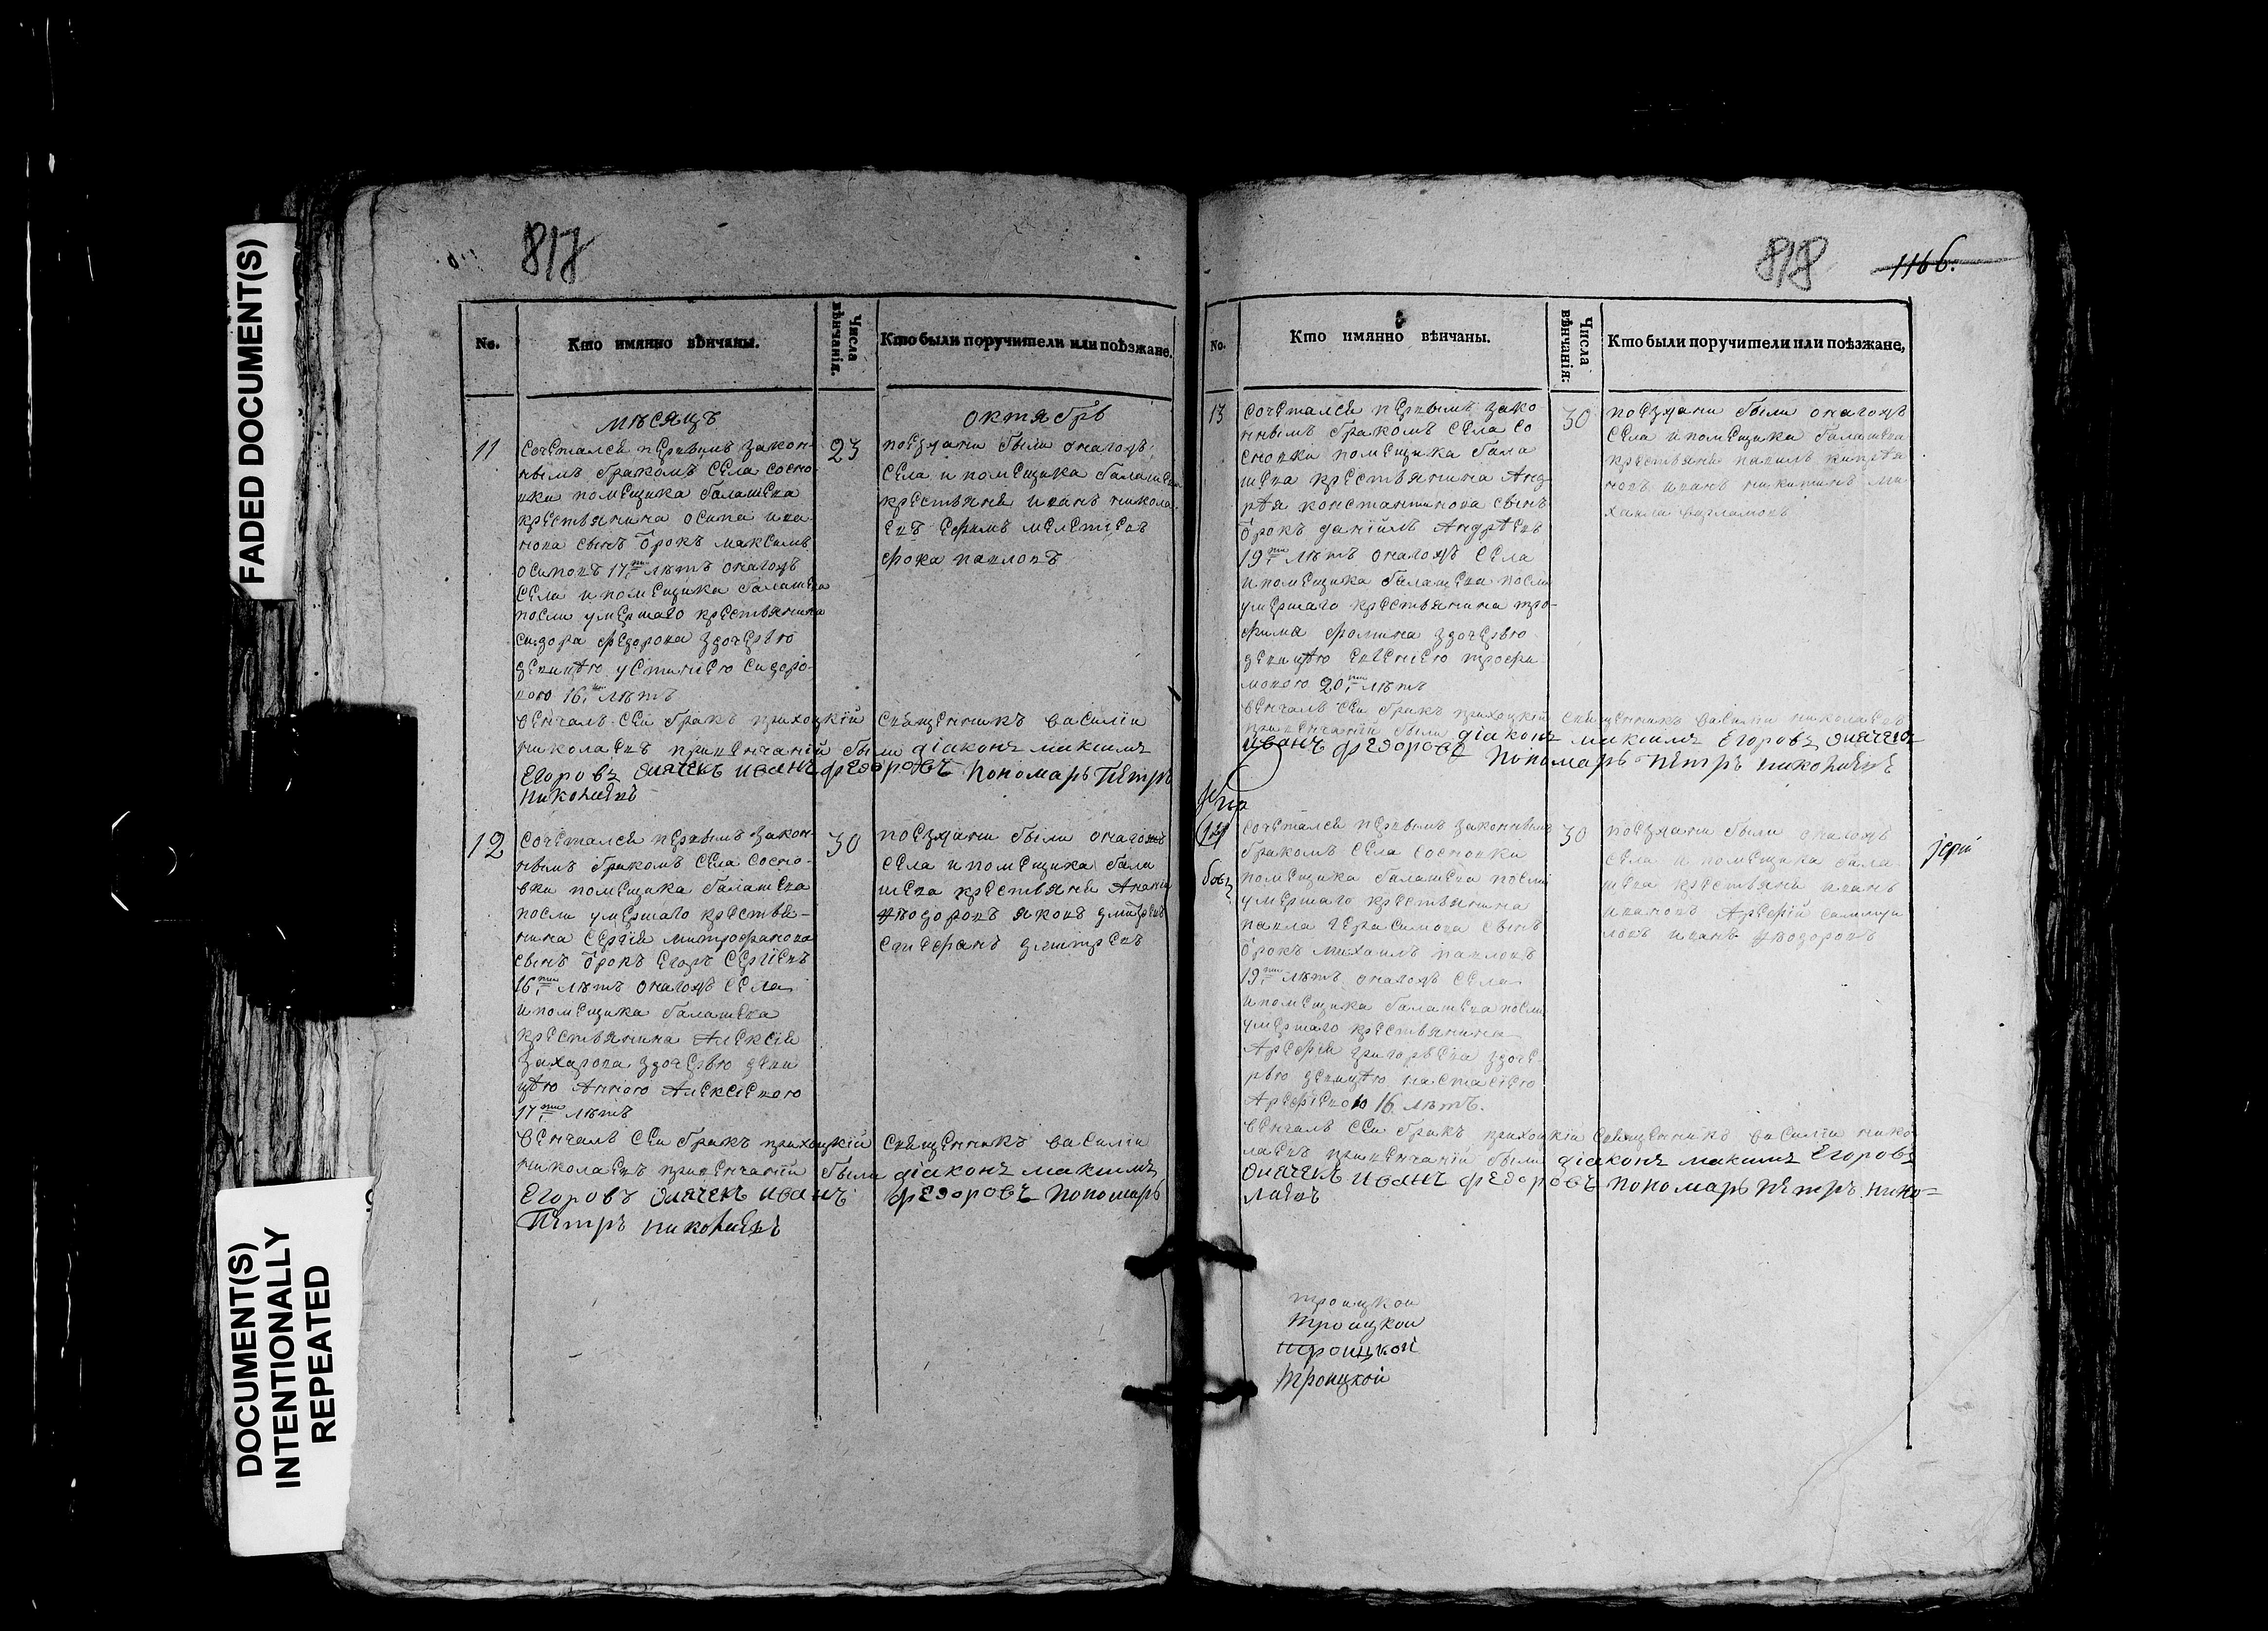 FADED DOCUMENT(S)
DOCUMENT(S)
INTENTIONALLY
REPEATED
817
No.
Кто имянно вѣнчаны.
Числа
вѣнчанія.
Кто были поручители или поѣзжане.
мѣсяцъ
октябрь
11
сочетался первымъ закон-
нымъ бракомъ села сосно-
вки помещика балашева
крестьянина осипа ива-
нова сынъ отрокъ максимъ
осиповъ 17ти лѣтъ онагожъ
села и помещика балашева
посли умершаго крестьянина
сидора федорова здочерью
девицею устиниею сидоро-
вою 16ти лѣтъ
23
поезжани были онагожъ
села и помещика балашева
крестьяне иванъ никола-
евъ ефимъ мелетіевъ
фока павловъ
венчалъ сеи бракъ прихоцкій свещенникъ василіи
николаевъ привенчаній были діаконъ максимъ
Егоровъ дьячекъ иванъ федоровъ пономарь Петръ
николаевъ
12
сочетался первымъ закон-
нымъ бракомъ села сосно-
вки помещика балашева
посли умершаго крестья-
нина сергія митрофанова
сынъ отрокъ егоръ сергіевъ
16ти лѣтъ онагожъ села
и помещика балашева
крестьянина алексія
захарова здочерью деви-
цею анною алексіевою
17ти лѣтъ
30
поезжани были онагожъ
села и помещика бала
шева крестьяне
яковъ дмитріевъ
дмитріевъ
венчалъ сеи бракъ прихоцкій свещенникъ василіи
николаевъ привенчаній были діаконъ максимъ
Егоровъ дьячекъ иванъ федоровъ пономарь
Петръ николаевъ
818
1166.
No.
Кто имянно вѣнчаны.
Числа
вѣнчанія:
Кто были поручители или поѣзжане,
13
сочетался первымъ зако
ннымъ бракомъ села со
сновки помещика бала
шева крестьянина анд-
рея константинова сынъ
отрокъ даніилъ андреевъ
19ти лѣтъ онагожъ села
и помещика балашева посли
умершаго крестьянина тро-
фима фомина здочерью
девицею евгениею трофи-
мовою 20ти лѣтъ
30
поезжани были онагожъ
села и помещика балашева
крестьяне
иванъ никитинъ ми
хаила
венчалъ сеи бракъ прихоцкій свещенникъ василіи николаевъ
привенчаній были діаконъ максимъ Егоровъ дьячекъ
иванъ федоровъ Пономарь Петръ николаевъ
14
сочетался первымъ законнымъ
бракомъ села сосновки
помещика балашева посли
умершаго крестьянина
павла герасимова сынъ
отрокъ михаилъ павловъ
19ти лѣтъ онагожъ села
и помещика балашева посли
умершаго крестьянина
арефія григорьева здоче-
рью девицею настасіею
арефіевою 16 лѣтъ.
30
поезжани были онагожъ
села и помещика бала
шева крестьяне иванъ
ивановъ арефій
иванъ
іерій
венчалъ сеи бракъ прихоцкій свещенникъ василіи нико
лаевъ привенчаній были діаконъ максимъ Егоровъ
дьячекъ иванъ федоровъ пономарь Петръ нико=
лаевъ
троицкои
троицкои
троицкои
Троицкой